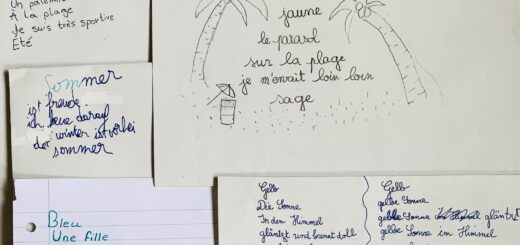 Un palmier
À la plage
Je suis très sportive
Été
jaune
le parasol
sur la plage
je m'envait loin loin
sage
Sommer
ist freude
ich darauf
der winter ist vorbei
sommer
Bleu
Une fille
Gelb
Die Sonne
In den Himmel
glänzt und brennt doll
Gelb
gelbe Sonne
gelbe Sonne glänzt
gelbe Sonne im Himmel